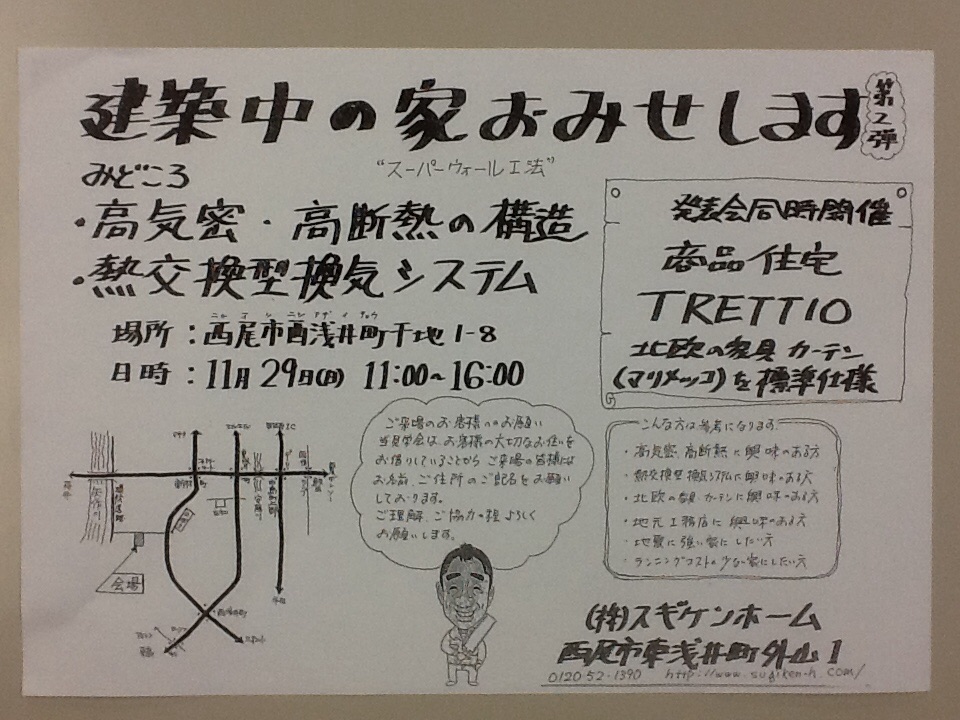 建築中の家おみせします
第2弾
"スーパーウォール工法"
みどころ
・高気密・高断熱の構造
・熱交換型換気システム
場所：西尾市西浅井町干地1-8
日時：11月29日(日) 11:00~16:00
発表会同時開催
商品住宅
TRETTIO
北欧の家具カーテン
(マリメッコ)を標準仕様
ご来場のお客様へのお願い
当見学会は、お客様の大切なお住いを
お借りしていることから ご来場の皆様には
お名前、ご住所のご記名をお願い
しております。
ご理解、ご協力の程 よろしく
お願いします。
こんな方は参考になります。
・高気密、高断熱に興味のある方
・熱交換型換気システムに興味のある方
・北欧の家具・カーテンに興味のある方
・地元工務店に興味のある方
・地震に強い家にしたい方
・ランニングコストの少ない家にしたい方
会場
(株)スギケンホーム
西尾市東浅井町外山1
0120-52-1390 http://www.sugiken-h.com/